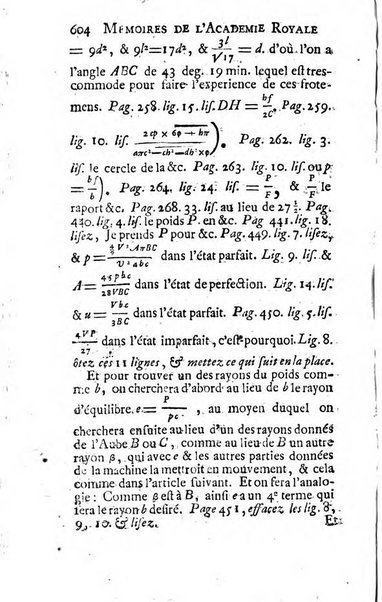 604 MEMOIRES DE L'ACADEMIE ROYALE
= 9d², & 9l²=17d², & 3l/√17 = d. d'où l'on a
l'angle ABC de 43 deg. 19 min. lequel est tres-
commode pour faire l'experience de ces frote-
mens. Pag. 258. lig. 15. lis. DH = bf/2C. Pag. 259.
lig. 10. lis. Pag. 262. lig. 3.
lis. le cercle de la &c. Pag. 263. lig. 10. lis. ou p
= bf/b). Pag. 264. lig. 24. lis. = P/F, & P/F le
raport &c. Pag. 268. 33. lis. au lieu de 27 ½. Pag.
440. lig. 4. lis. le poids P. en &c. Pag 441. lig. 18.
lisez, Je prends P pour &c. Pag. 449. lig. 7. lisez,
& p = dans l'état parfait. Lig. 9. lis. &
A = dans l'état de perfection. Lig. 14. lis.
& u = Vbc/3BC dans l'état parfait. Pag. 450. lig. 5. lis.
4VP/27 dans l'état imparfait, c'est pourquoi. Lig. 8.
ôtez ces 11 lignes, & mettez ce qui suit en la place.
Et pour trouver un des rayons du poids com-
me b, on cherchera d'abord au lieu de b le rayon
d'équilibre. e = P/pc, au moyen duquel on
cherchera ensuite au lieu d'un des rayons donnés
de l'Aube B ou C, comme au lieu de B un autre
rayon β, qui avec e & les autres parties données
de la machine la mettroit en mouvement, & cela
comme dans l'article suivant. Et on fera l'analo-
gie: Comme β est à B, ainsi e a un 4e terme qui
sera le rayon b desiré. Page 451, effacez les lig. 8,
9, 10. & lisez. Et